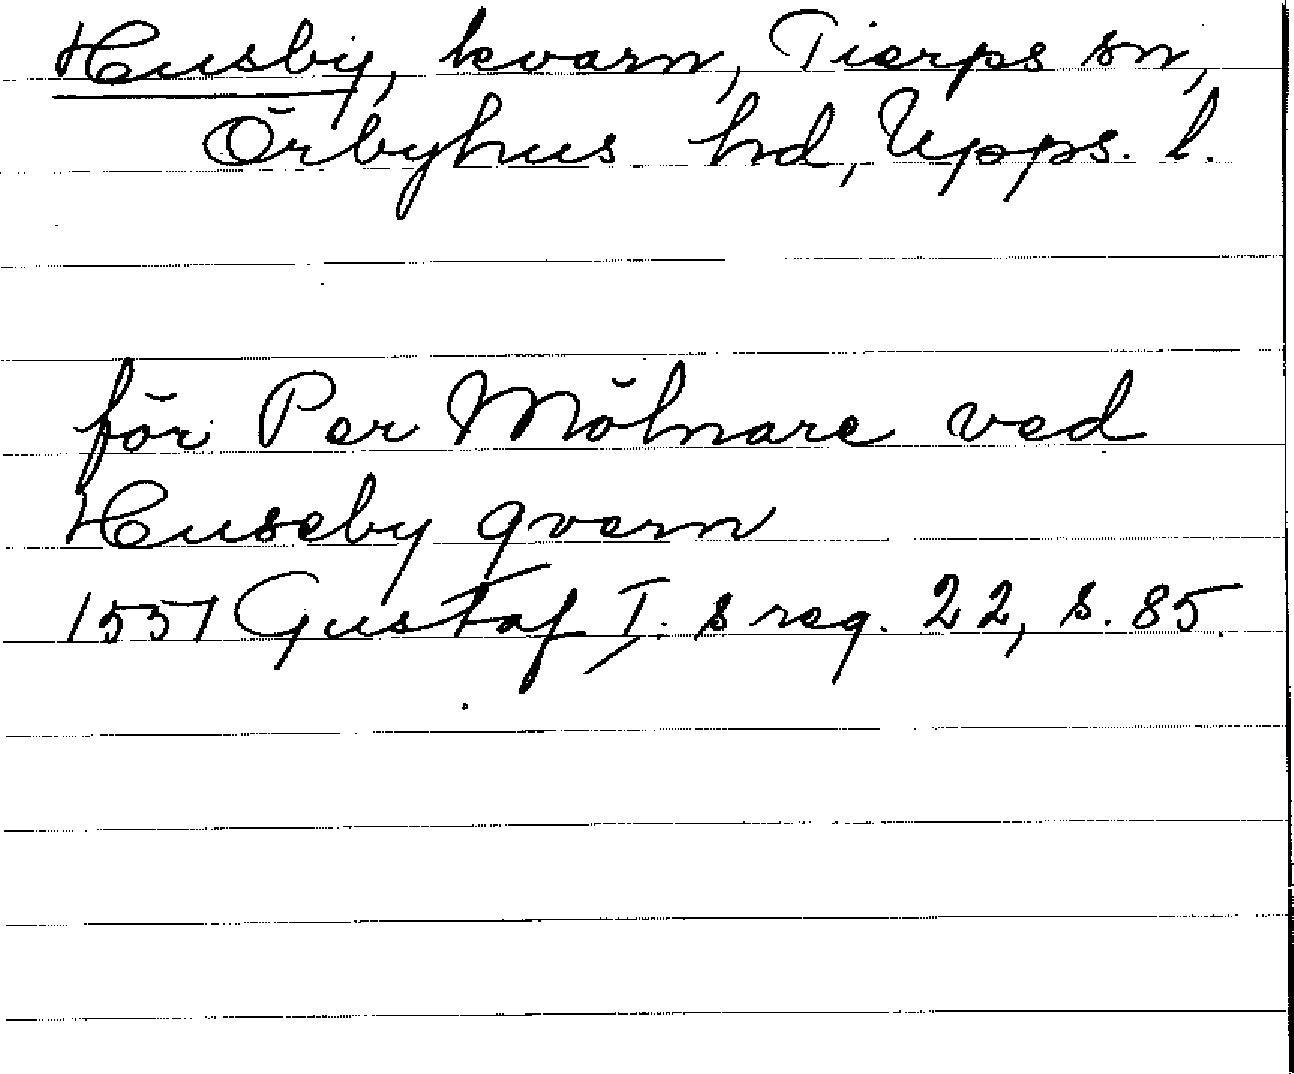 Husby, kvarn, Tierps sn,
Örbyhus hd, Upps. l.
för Per Mölnare ved
Huseby qvern
1551 Gustaf I. s reg. 22, s. 85.